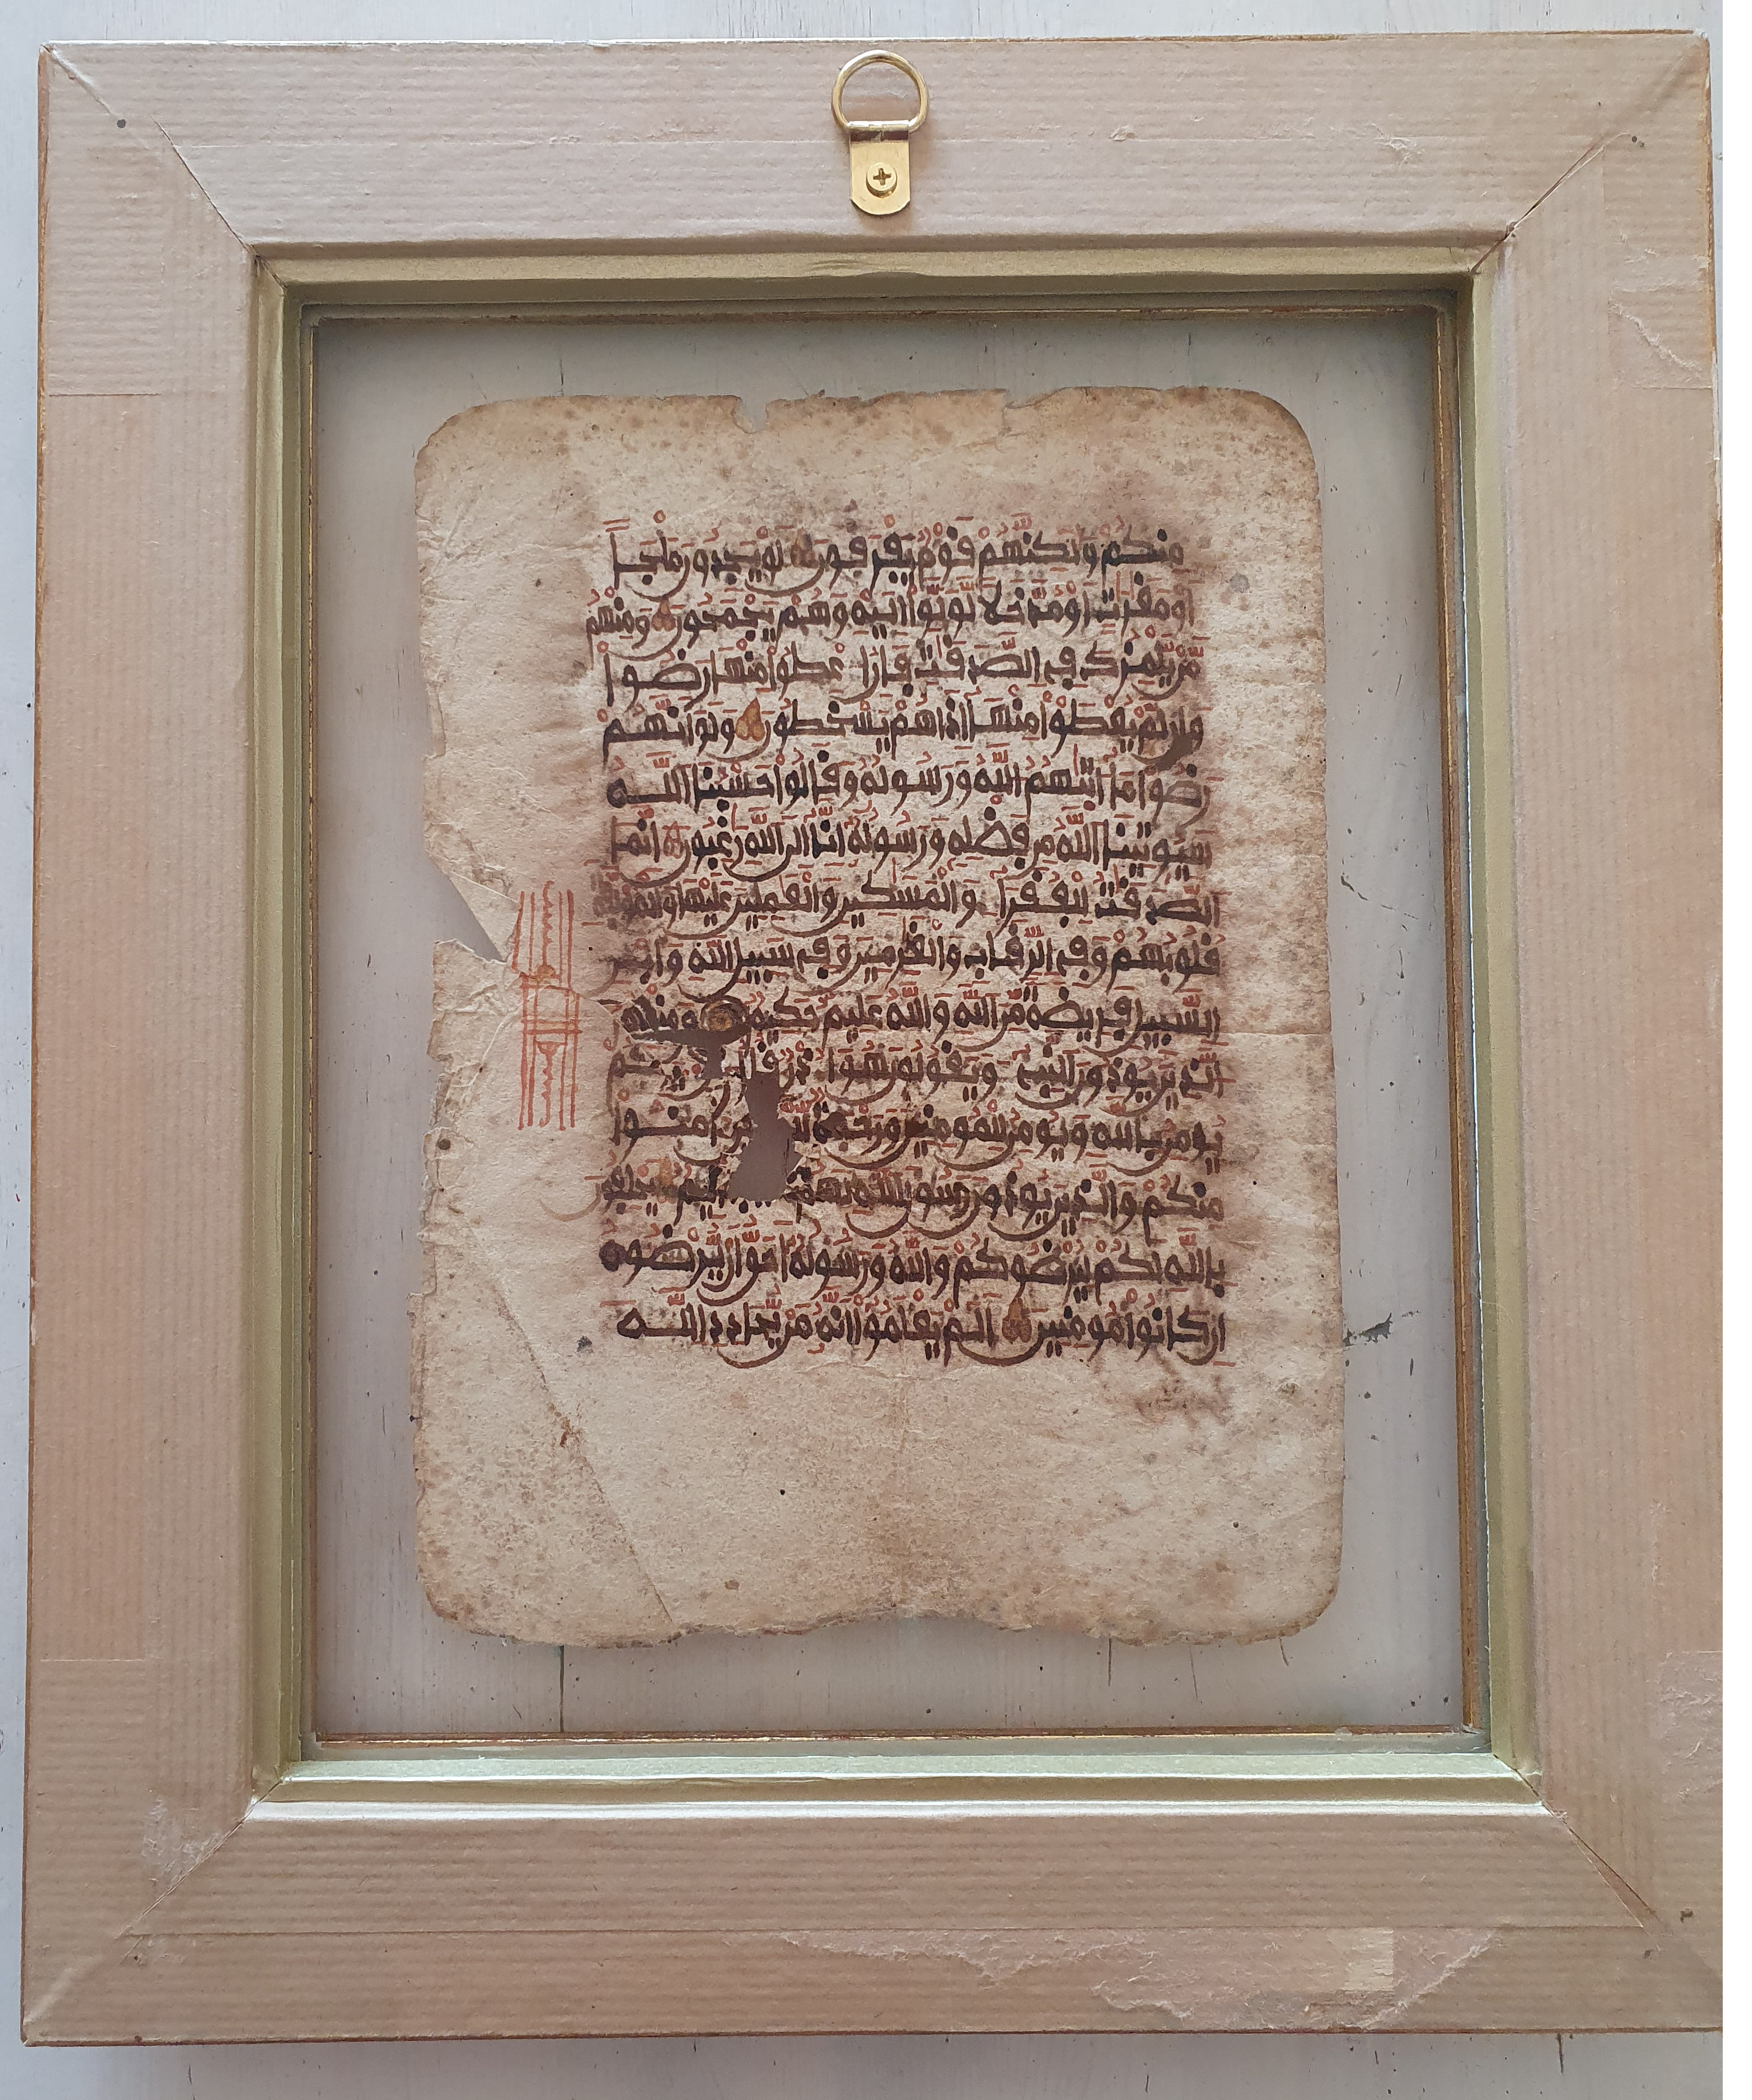 منكم ولكنهم قوم يفرقون لو يجدون ملجا
او مغرت او مدخلا لولوا اليه وهم يجمحون ومنهم
من يلمزك في الصدقت فان اعطوا منها رضوا
وان لم يعطوا منها اذا هم يسخطون ولو انهم
رضوا ما اتيهم الله ورسوله وقالوا حسبنا الله
سيوتينا الله من فضله ورسوله انا الى الله رغبون انما
الصدقت للفقرا والمسكين والعملين عليها والمولفة
قلوبهم وفي الرقاب والغرمين وفي سبيل الله وابن
السبيل فريضة من الله والله عليم حكيم ومنهم
الذين يوذون النبي ويقولون هو اذن قل خير لكم
يومن بالله ويومن للمومنين ورحمة امنوا
منكم والذين يوذون رسول الله لهم اليم يحلفون
بالله لكم ليرضوكم والله ورسوله احق ان يرضوه
ان كانوا مومنين الم يعلموا انه من يحادد الله